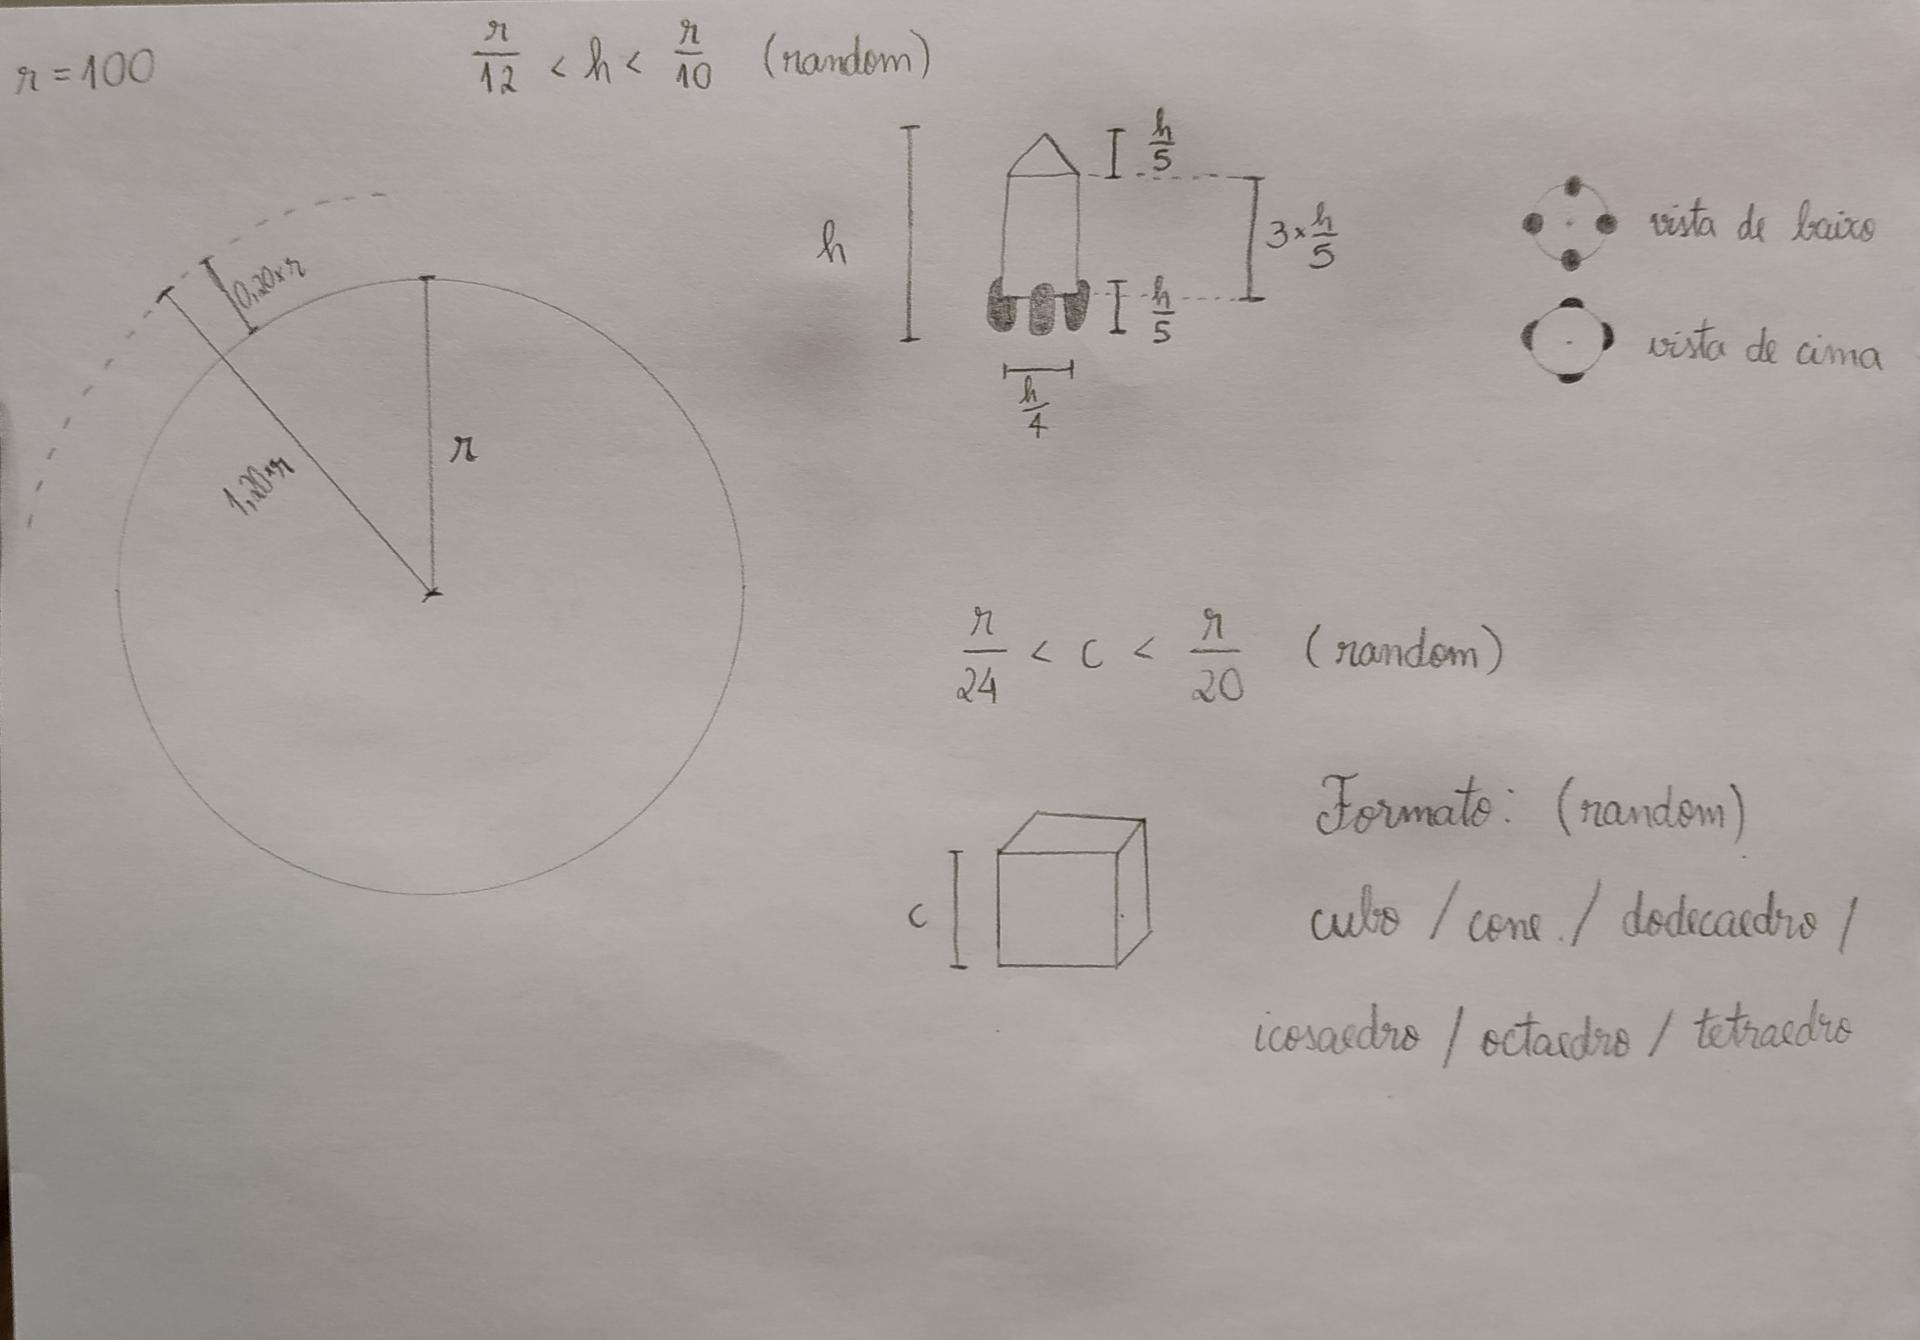 r = 100
r/12 < h < r/10 (random)
h/5
h
3×h/5
h/5
h/4
vista de baixo
vista de cima
0,20×r
1,20×r
r
r/24 < c < r/20 (random)
c
Formato: (random)
cubo / cone / dodecaedro /
icosaedro / octaedro / tetraedro